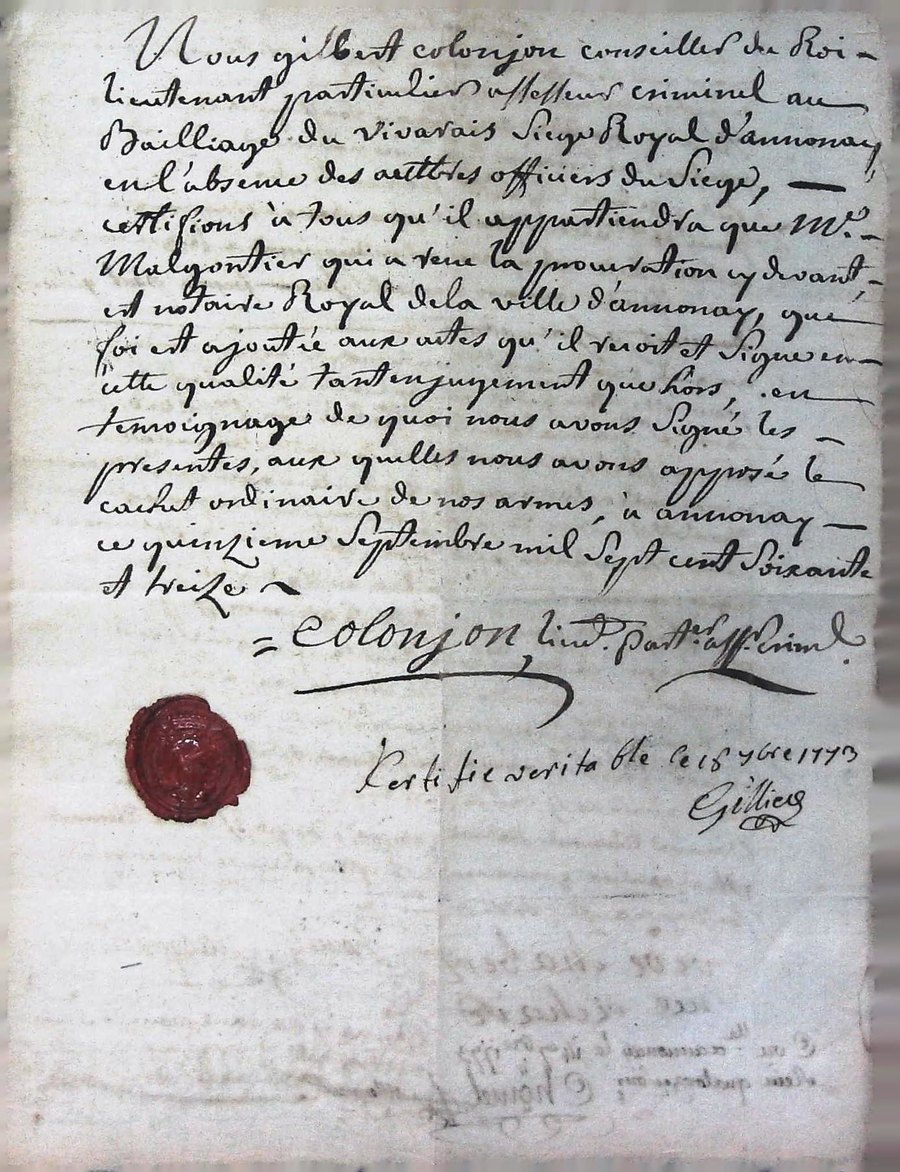 Nous gilbert colonjon conseiller du Roi -
lieutenant particulier assesseur criminel au
Bailliage du vivarais Siege Royal d'annonay,
en l'absense des authres officiers du Siege, —
certifions à tous qu'il appartiendra que Me. -
Malgontier qui a reçu la procuration cy devant, -
est notaire Royal dela ville d'annonay, que
foi est ajoutée aux actes qu'il reçoit et Signe en -
cette qualité tant en jugement que hors, en
temoignage de quoi nous avons Signé les -
presentes, aux quelles nous avons apposé le
cachet ordinaire de nos armes, à annonay —
ce quinzieme Septembre mil Sept cent Soixante
et treize ~
= Colonjon, lieut. partier. assr. criml.
Certifie veritable le 18 7bre 1773
Gillier